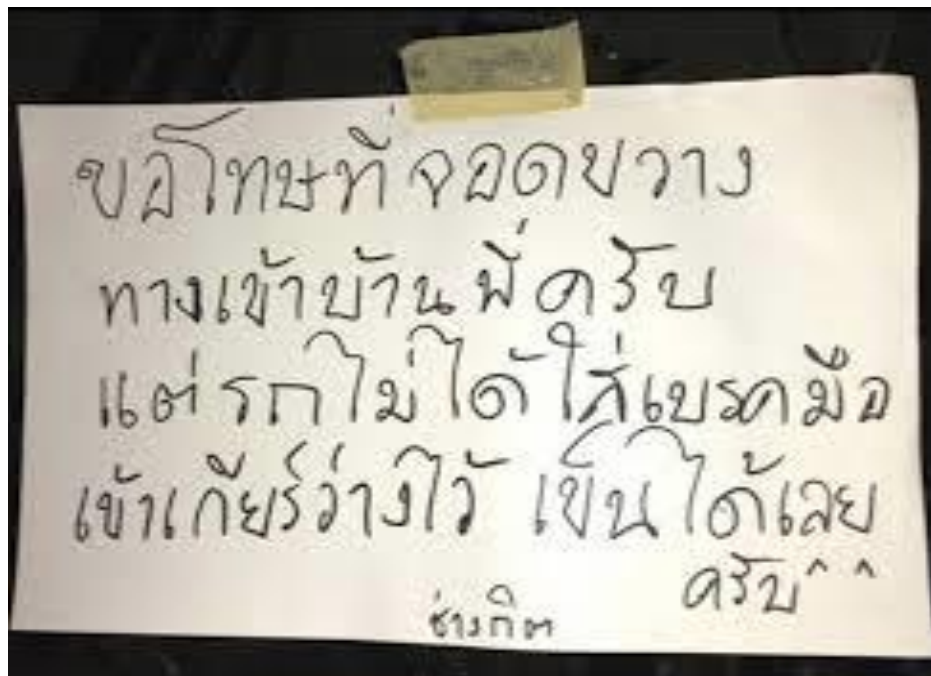 ขอโทษที่จอดขวาง
ทางเข้าบ้านพี่ครับ
แต่รถไม่ได้ใส่เบรคมือ
เข้าเกียร์ว่างไว้ เข็นได้เลย
ครับ^^
ช่างกิต